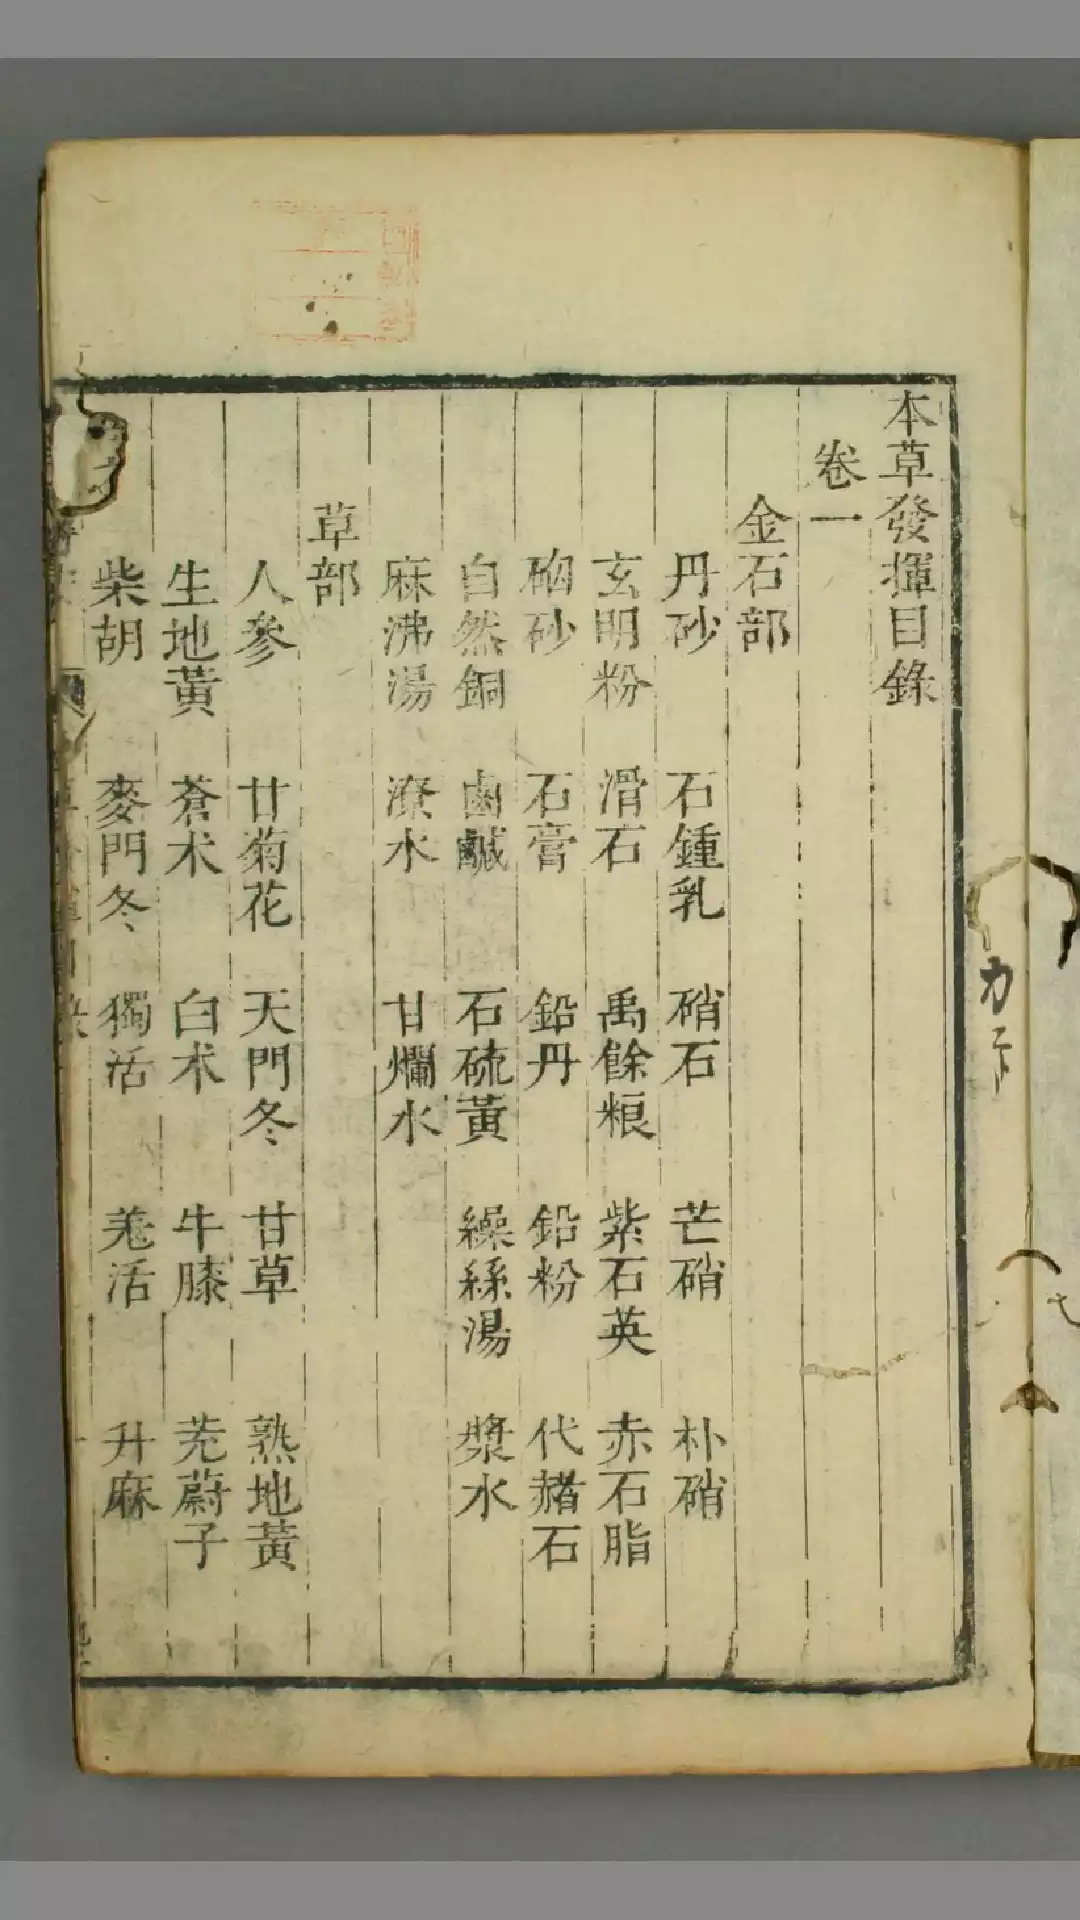 本草發揮目錄
卷一
金石部
丹砂 石鍾乳 硝石 芒硝 朴硝
玄明粉 滑石 禹餘粮 紫石英 赤石脂
硇砂 石膏 鉛丹 鉛粉 代赭石
自然銅 鹵鹹 石硫黃 繰絲湯 漿水
麻沸湯 潦水 甘爛水
草部
人參 甘菊花 天門冬 甘草 熟地黃
生地黃 蒼朮 白朮 牛膝 茺蔚子
柴胡 麥門冬 獨活 羗活 升麻